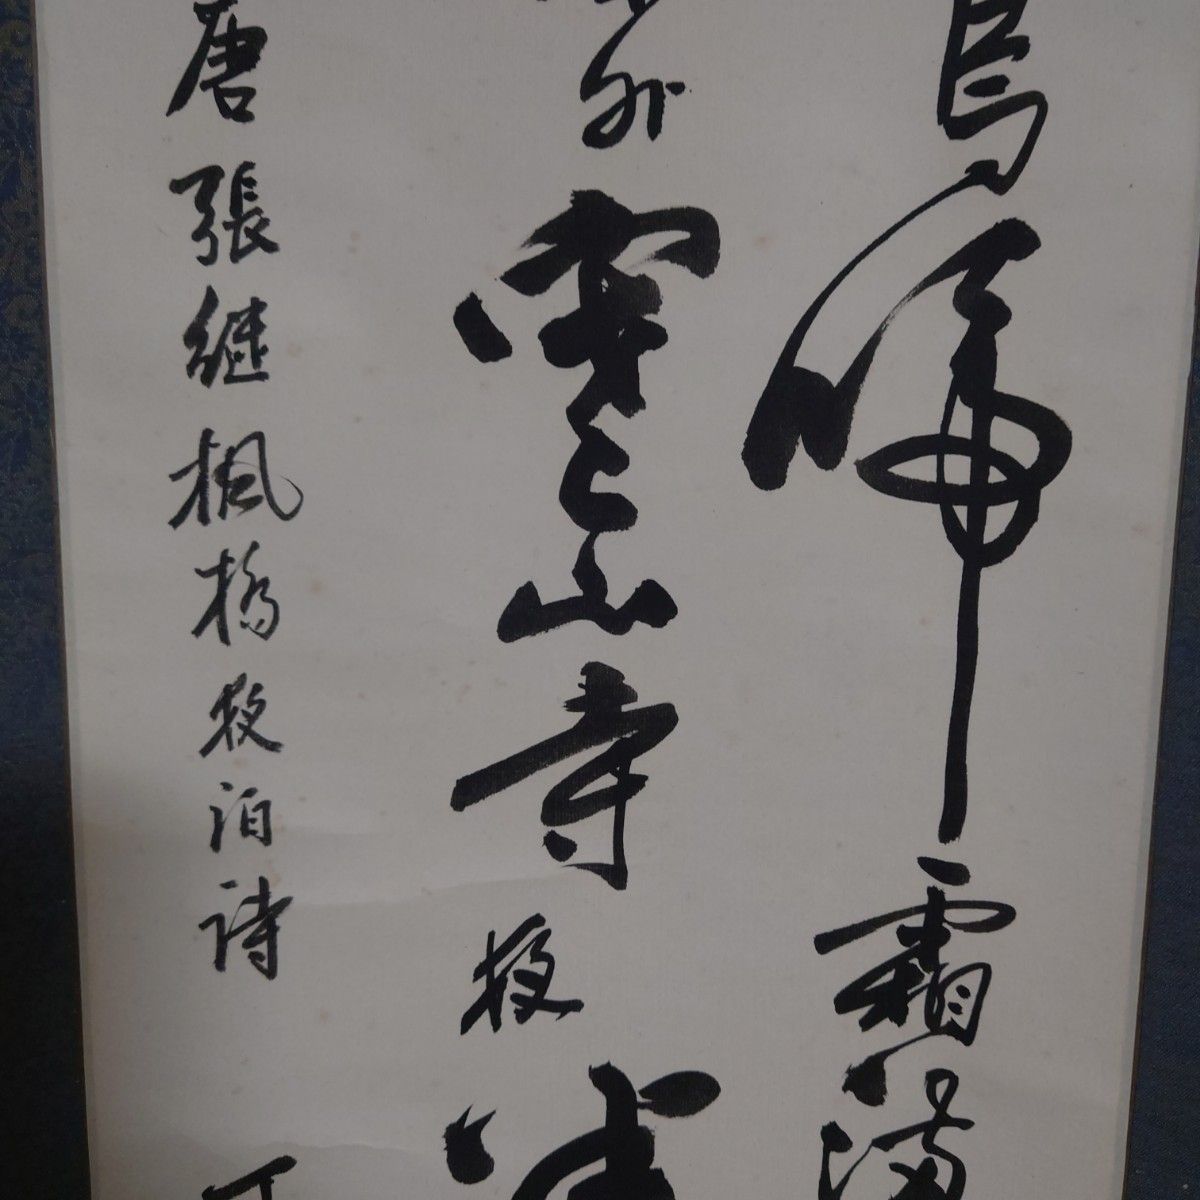 烏啼霜滿
外寒山寺夜半
唐張继楓橋夜泊詩